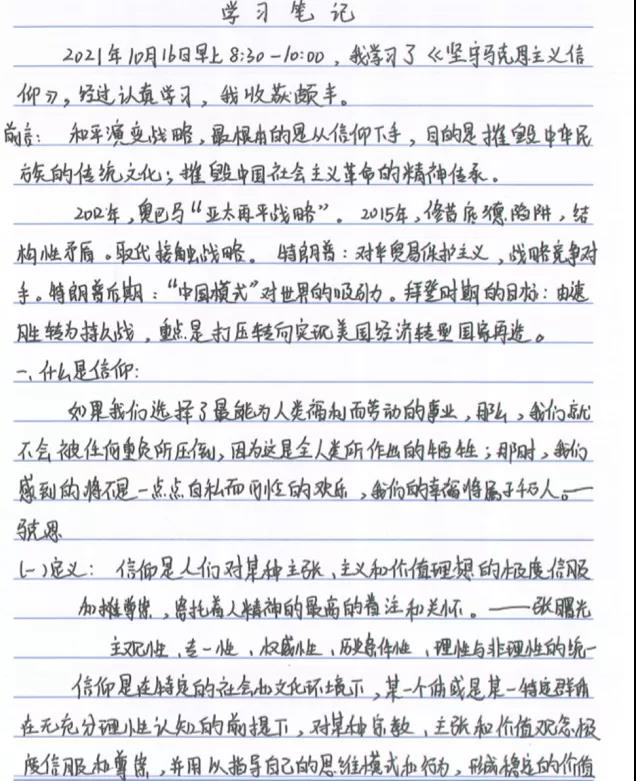 学习笔记
2021年10月16日早上8:30-10:00，我学习了《坚守马克思主义信
仰》，经过认真学习，我收获颇丰。
前言：和平演变战略，最根本的是从信仰下手，目的是摧毁中华民
族的传统文化；摧毁中国社会主义革命的精神传承。
2012年，奥巴马“亚太再平战略”。2015年，修昔底德陷阱，结
构性矛盾。取代接触战略。特朗普：对华贸易保护主义，战略竞争对
手。特朗普后期：“中国模式”对世界的吸引力。拜登时期的目标：由速
胜转为持久战，重点是打压转向实现美国经济转型国家再造。
一、什么是信仰：
如果我们选择了最能为人类福利而劳动的事业，那么，我们就
不会被任何重负所压倒，因为这是全人类所作出的牺牲；那时，我们
感到的将不是一点点自私而可怜的欢乐，我们的幸福将属于千万人。——
马克思
(一)定义：信仰是人们对某种主张、主义和价值理想的极度信服
和推尊崇，寄托着人精神的最高的眷注和关怀。——张曙光
主观性、专一性、权威性、历史条件性、理性与非理性的统一
信仰是在特定的社会和文化环境下，某一个体或是某一特定群体
在无充分理性认知的前提下，对某种宗教、主张和价值观念极
度信服和尊崇，并用以指导自己的思维模式和行为，形成稳定的价值